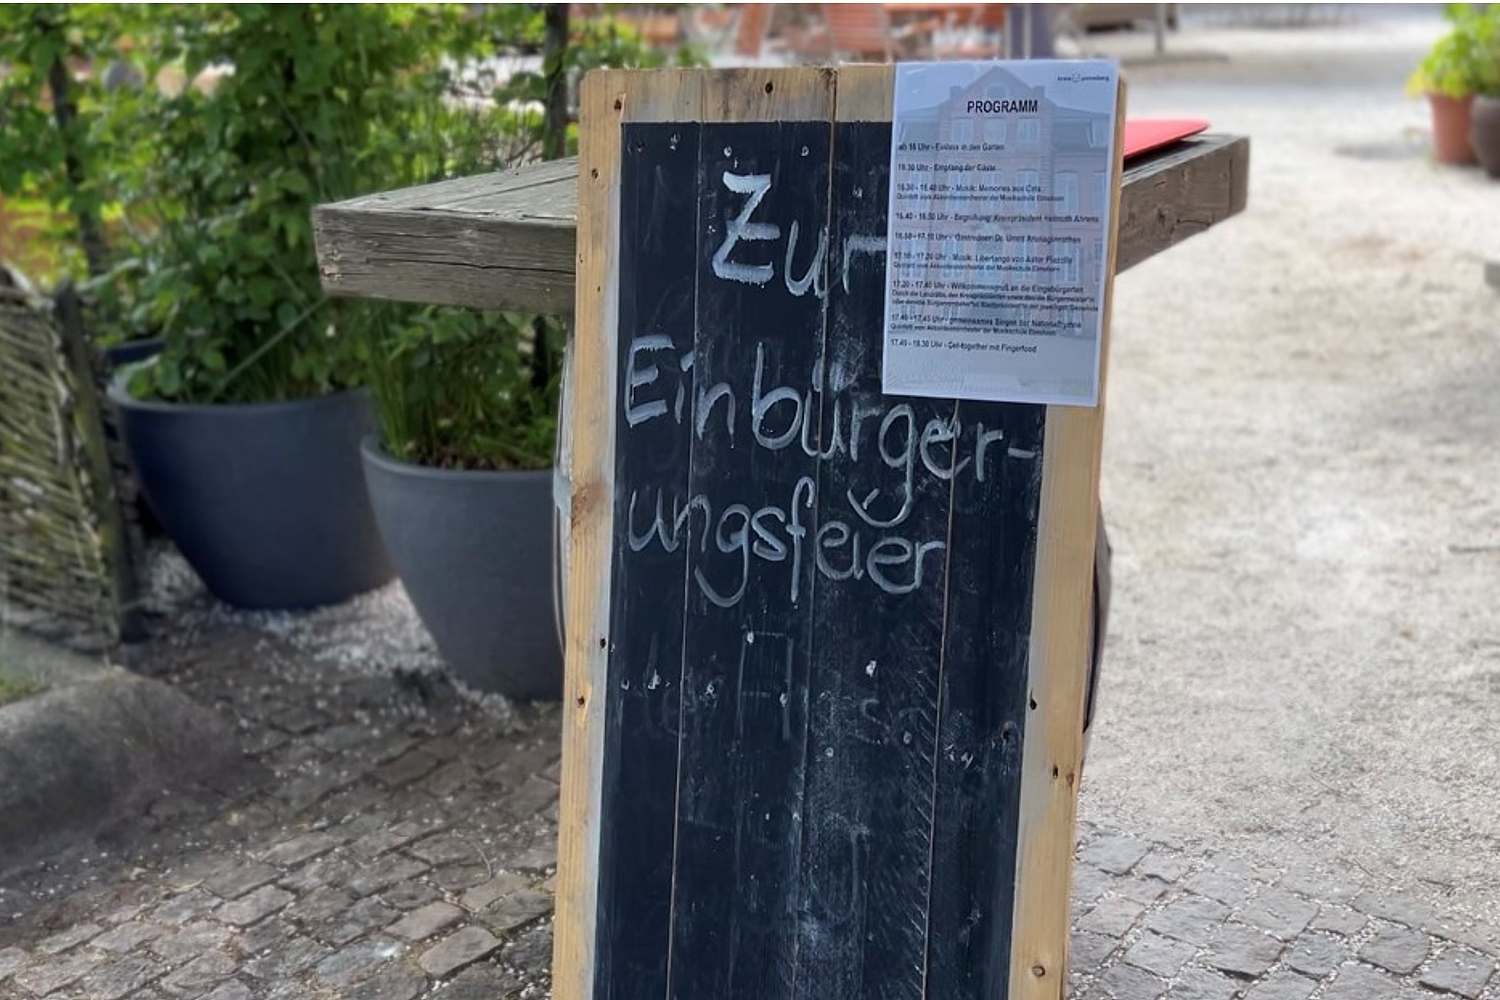 Zur
Einbürger-
ungsfeier
PROGRAMM
ab 16 Uhr - Einlass in den Garten
16.30 Uhr - Empfang der Gäste
16.30 - 16.40 Uhr - Musik: Memories aus Cats
Quintett vom Akkordeonorchester der Musikschule Elmshorn
16.40 - 16.50 Uhr - Begrüßung: Kreispräsident Helmuth Ahrens
16.50 - 17.10 Uhr - Gastredner: Dr. Umes Arunagirinathan
17.10 - 17.20 Uhr - Musik: Libertango von Astor Piazolla
Quintett vom Akkordeonorchester der Musikschule Elmshorn
17.20 - 17.40 Uhr - Willkommensgruß an die Eingebürgerten
Durch die Landrätin, den Kreispräsidenten sowie den/die Bürgermeister*in
17.40 - 17.45 Uhr - gemeinsames Singen der Nationalhymne
Quintett vom Akkordeonorchester der Musikschule Elmshorn
17.45 - 18.30 Uhr - Get-together mit Fingerfood